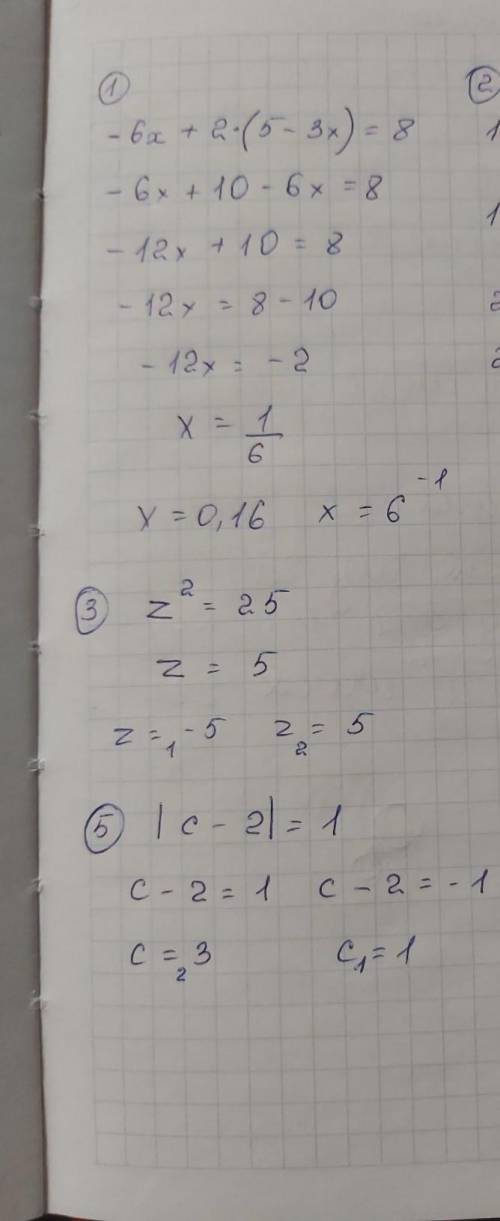 ① ②
-6x + 2·(5 - 3x) = 8
1
-6x + 10 - 6x = 8
1
-12x + 10 = 8
-12x = 8 - 10
2
-12x = -2
2
x = 1/6
x = 0,16 x = 6⁻¹
③ z² = 25
z = 5
z =₁ -5 z₂ = 5
⑤ |c - 2| = 1
c - 2 = 1 c - 2 = -1
c =₂ 3 c₁ = 1